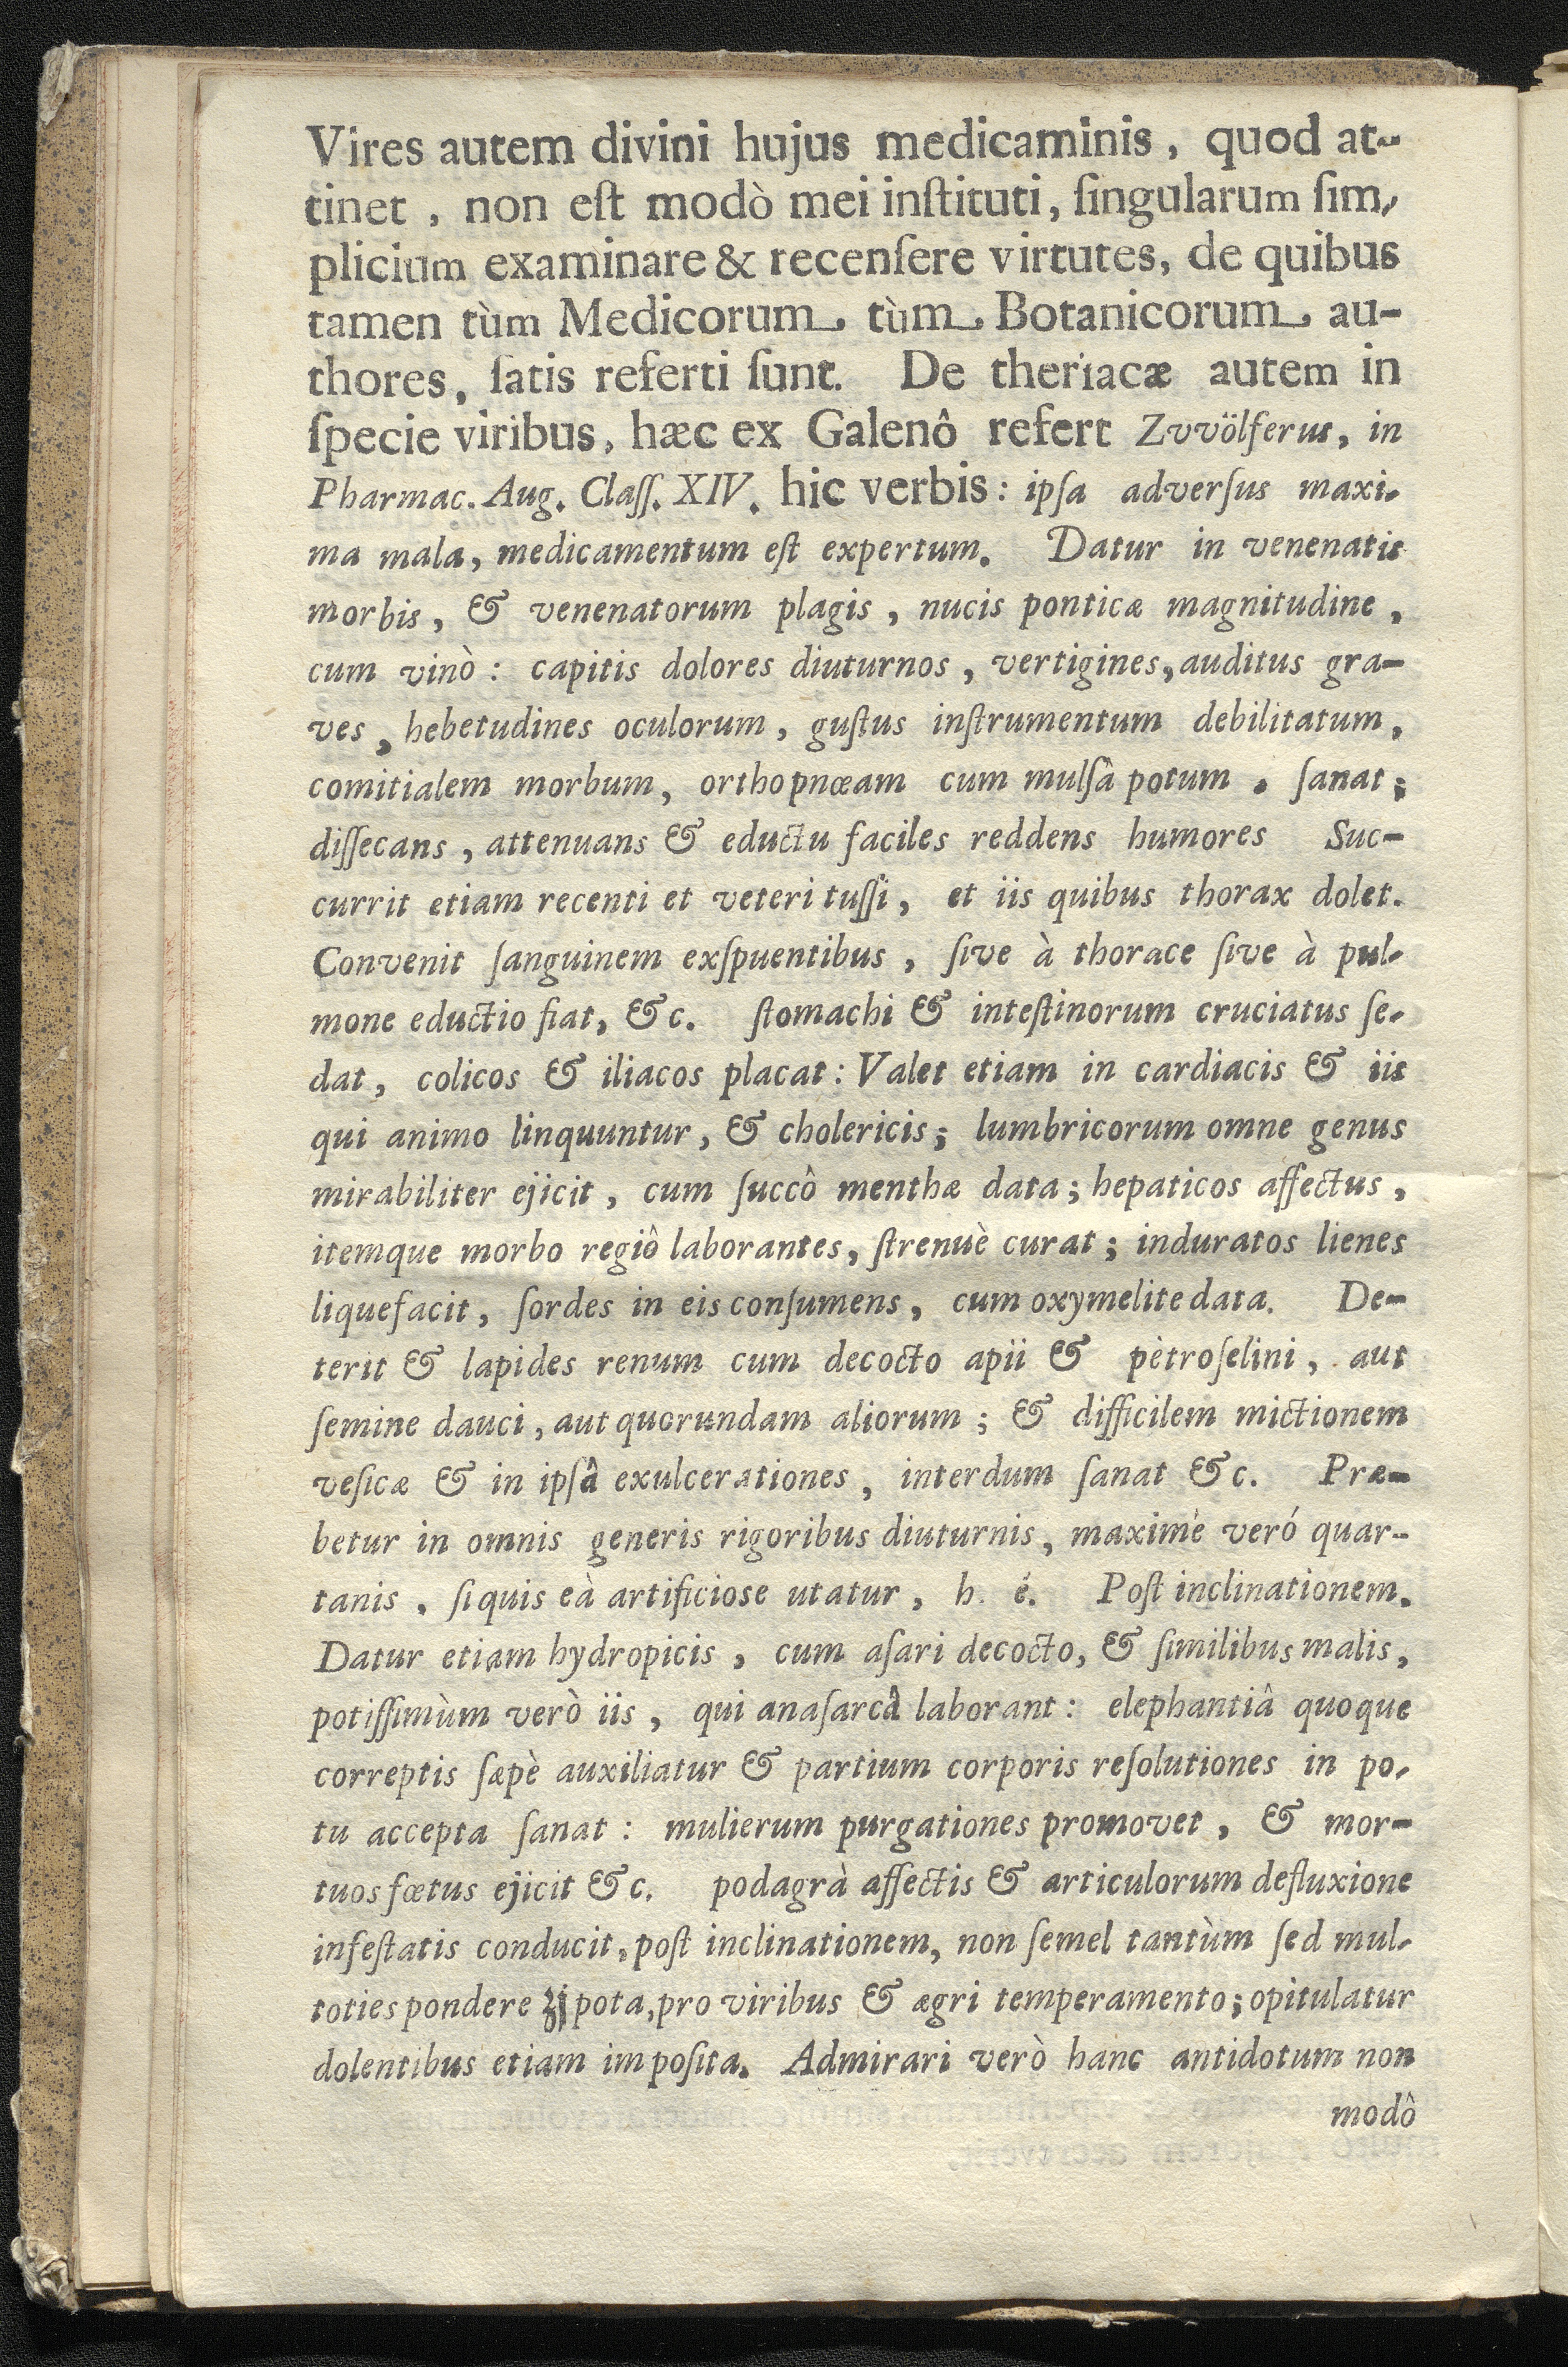 Vires autem divini hujus medicaminis, quod at-
tinet, non eſt modò mei inſtituti, ſingularum ſim-
plicium examinare & recenſere virtutes, de quibus
tamen tùm Medicorum, tùm Botanicorum, au-
thores, ſatis referti ſunt. De theriacæ autem in
ſpecie viribus, hæc ex Galenô refert Zvvölferus, in
Pharmac. Aug. Claſſ. XIV. hic verbis: ipſa adverſus maxi-
ma mala, medicamentum eſt expertum. Datur in venenatis
morbis, & venenatorum plagis, nucis ponticæ magnitudine,
cum vinò: capitis dolores diuturnos, vertigines, auditus gra-
ves, hebetudines oculorum, guſtus inſtrumentum debilitatum,
comitialem morbum, orthopnœam cum mulſâ potum. ſanat;
diſſecans, attenuans & eductu faciles reddens humores Suc-
currit etiam recenti et veteri tuſſi, et iis quibus thorax dolet.
Convenit ſanguinem exſpuentibus, ſive à thorace ſive à pul-
mone eductio fiat, &c. ſtomachi & inteſtinorum cruciatus ſe-
dat, colicos & iliacos placat: Valet etiam in cardiacis & iis
qui animo linquuntur, & cholericis; lumbricorum omne genus
mirabiliter ejicit, cum ſuccô menthæ data; hepaticos affectus,
itemque morbo regiô laborantes, ſtrenuè curat; induratos lienes
liquefacit, ſordes in eis conſumens, cum oxymelite data. De-
terit & lapides renum cum decocto apii & pètroſelini, aut
ſemine dauci, aut quorundam aliorum; & difficilem mictionem
veſicæ & in ipſâ exulcerationes, interdum ſanat &c. Præ-
betur in omnis generis rigoribus diuturnis, maximè veró quar-
tanis, ſi quis eà artificiose utatur, h. é. Poſt inclinationem.
Datur etiam hydropicis, cum aſari decocto, & ſimilibus malis,
potiſſimùm verò iis, qui anaſarcâ laborant: elephantiâ quoque
correptis ſæpè auxiliatur & partium corporis reſolutiones in po-
tu accepta ſanat: mulierum purgationes promovet, & mor-
tuos fœtus ejicit &c. podagrà affectis & articulorum defluxione
infeſtatis conducit, poſt inclinationem, non ſemel tantùm ſed mul-
toties pondere ʒj pota, pro viribus & ægri temperamento; opitulatur
dolentibus etiam impoſita. Admirari verò hanc antidotum non
modô